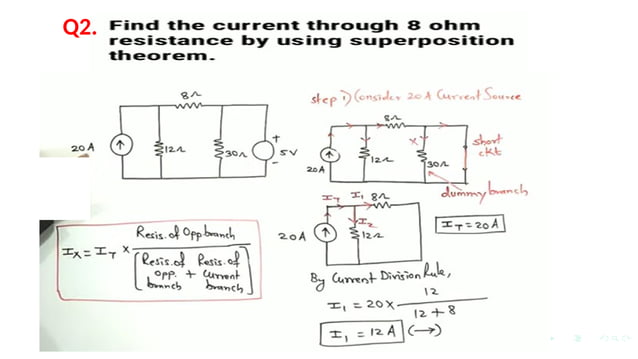 Q2. Find the current through 8 ohm
resistance by using superposition
theorem.
8Ω
20A
12Ω
30Ω
+
-
5V
step 1) Consider 20 A Current Source
8Ω
20A
12Ω
X
30Ω
short
ckt
dummy branch
I_T I_1 8Ω
I_2
20A
12Ω
I_T = 20A
I_X = I_T × Resis. of Opp. branch
[Resis. of opp. branch + Resis. of current branch]
By Current Division Rule,
I_1 = 20 × 12
12 + 8
I_1 = 12A (→)